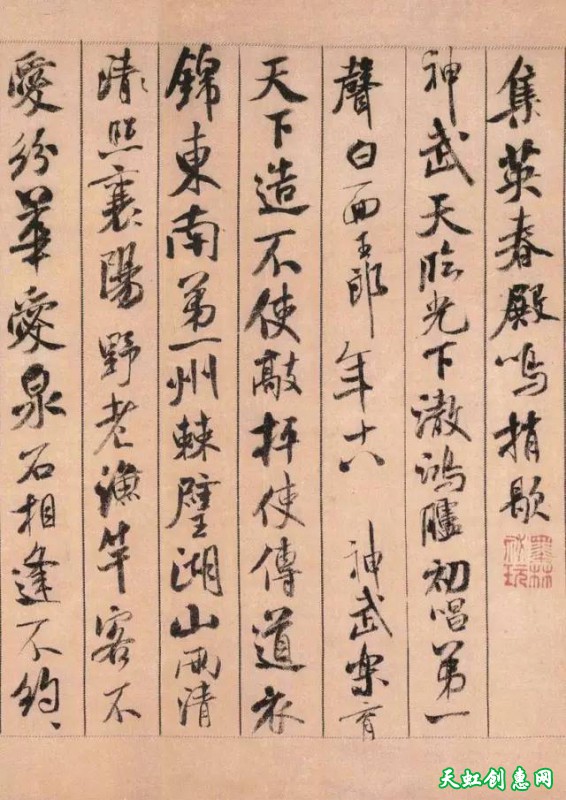 集英春殿鳴捎歇
神武天臨光下澈鴻臚初唱第一
聲白面玉郎年十八 神武樂育
天下造不使敲枰使傳道衣
錦東南第一州棘璧湖山兩清
晴照襄陽野老漁竿客不
愛紛華愛泉石相逢不約、
墨林秘玩
天虹创惠网